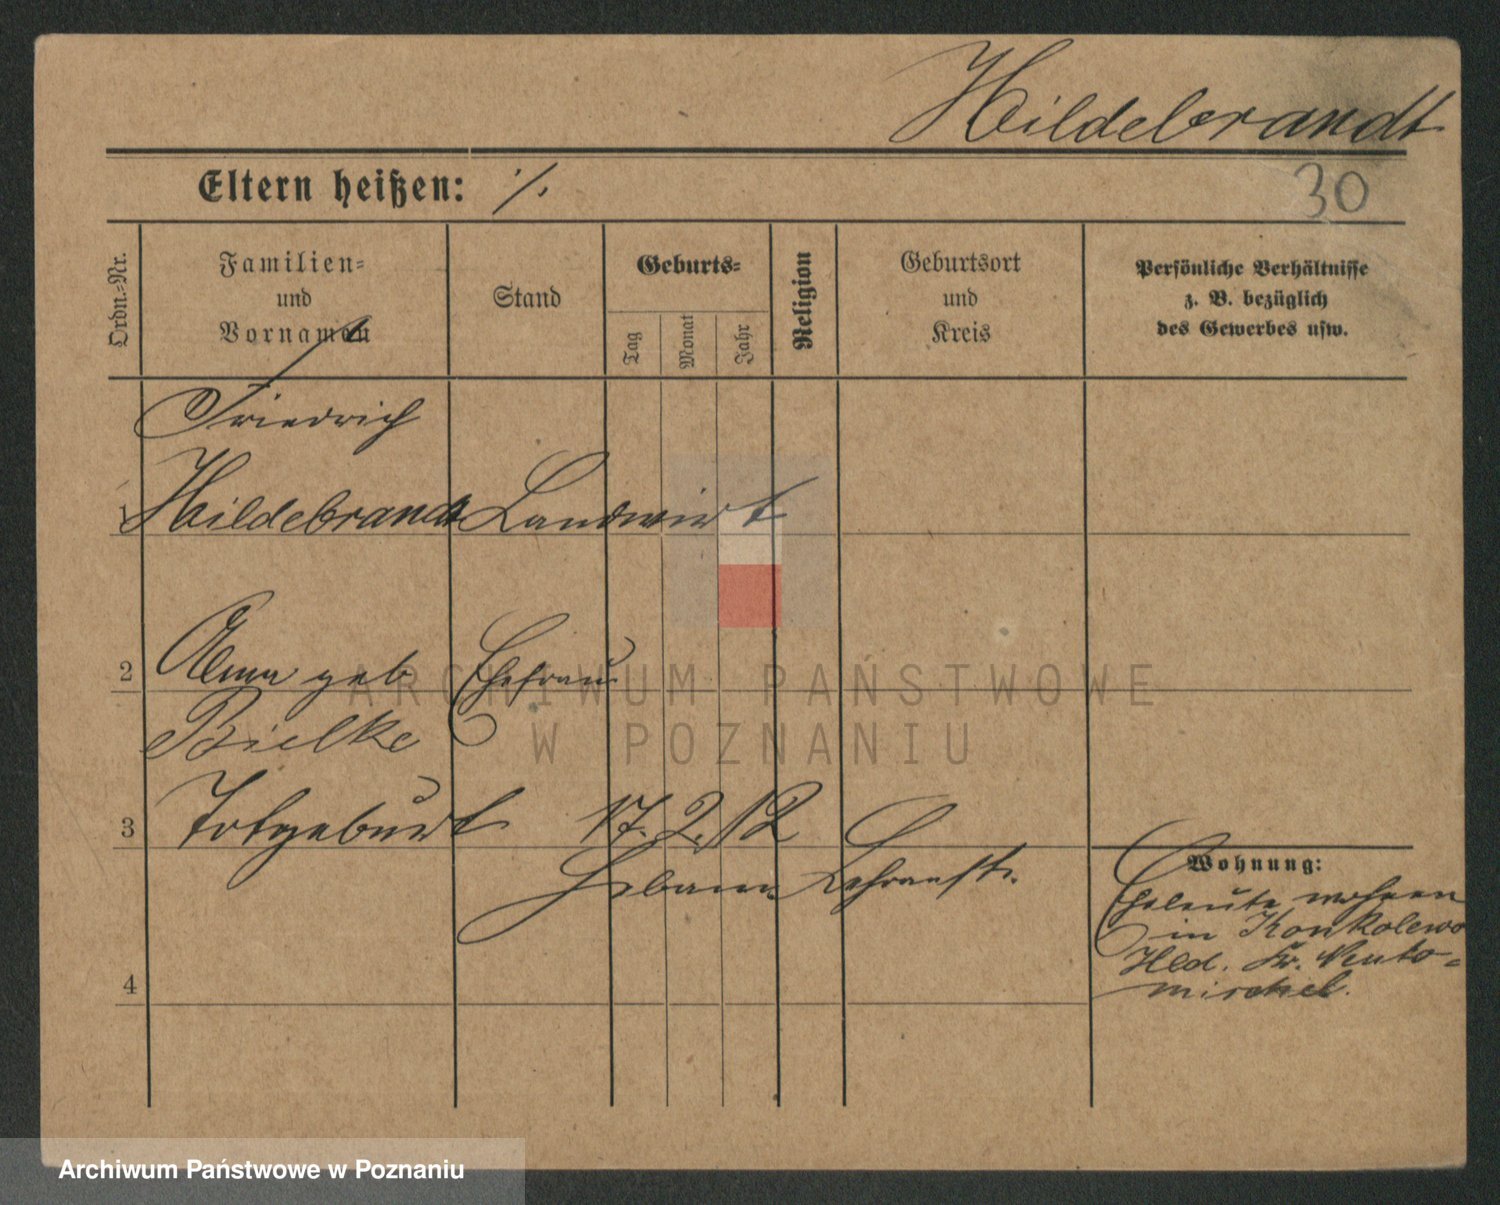 Hildebrandt
Eltern heißen: ·/.
30
Ordn.-Nr.
Familien-
und
Vornamen
Stand
Geburts-
Tag
Monat
Jahr
Religion
Geburtsort
und
Kreis
Persönliche Verhältnisse
z. B. bezüglich
des Gewerbes usw.
Friedrich
1 Hildebrandt Landwirt
2 Alma geb Ehefrau
Bielke
3 Totgeburt 17. 2. 12
Hebam. Lehranst.
Wohnung:
Eheleute wohnen
in Konkolewo
Hld. Kr. Neuto-
mischel.
4
ARCHIWUM PAŃSTWOWE
W POZNANIU
Archiwum Państwowe w Poznaniu